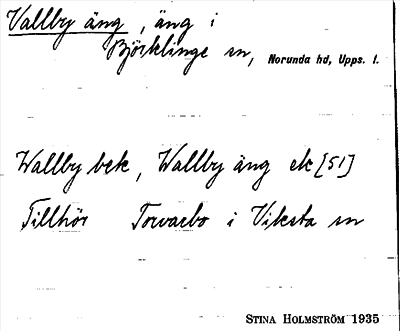 Vallby äng, äng i
Björklinge sn, Norunda hd, Upps. l.
Wallby bek, Wallby äng ek [51]
Tillhör Torvarbo i Viksta sn
STINA HOLMSTRÖM 1935